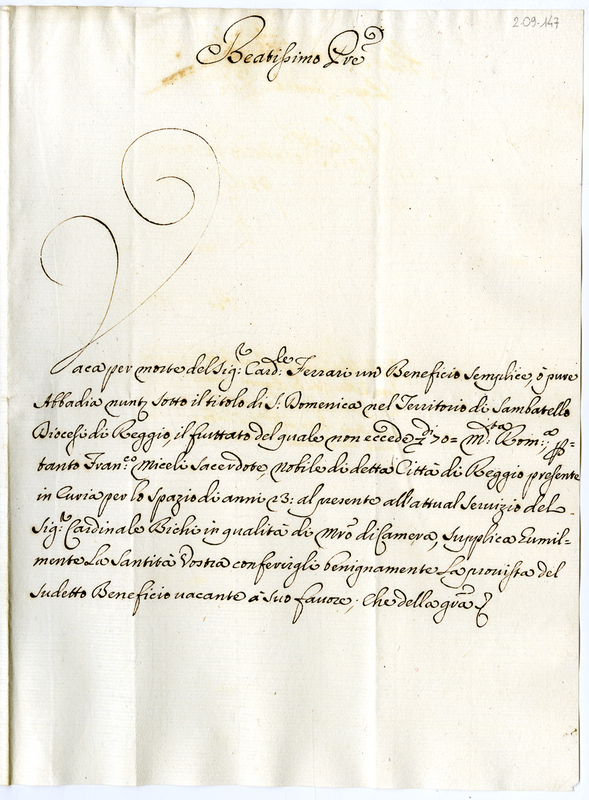 2-09-147
Beatissimo Pre
Vaca per morte del Sig:r Card:le Ferrari un Beneficio semplice, ò pure
Abbadia nunt sotto il titolo di S: Domenica nel Territorio di Sambatello
Diocesi di Reggio il fruttato del quale non eccede 70= M:ta Rom:a, Per
tanto Fran:co Miceli Sacerdote, nobile di detta Città di Reggio presente
in Curia per lo spazio di anni 23: al presente all'attual servizio del
Sig:r Cardinale Bichi in qualità di Mro di Camera, supplica humil=
mente La Santità Vostra conferirgli benignamente La provista del
sudetto Beneficio vacante à suo favore; Che della gra